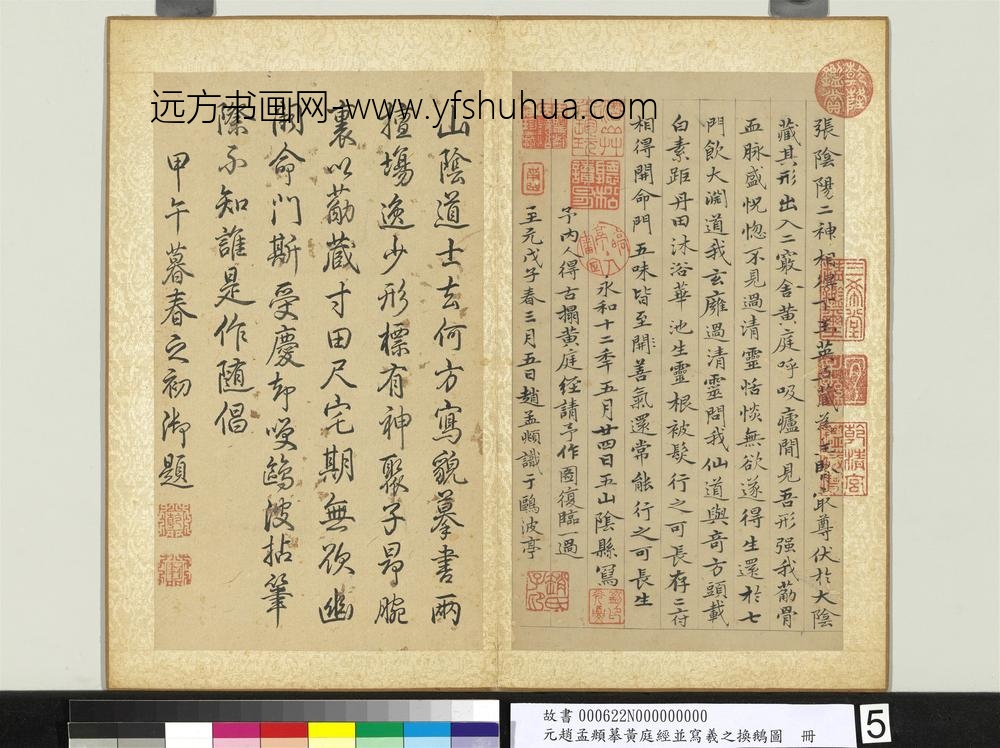 远方书画网-www.yfshuhua.com
張陰陽二神相得下玉英
最尊伏於太陰
藏其形出入二竅舍黃庭呼吸廬間見吾形强我筋骨
血脉盛恍惚不見過清靈恬惔無欲遂得生還於七
門飲大淵道我玄廱過清靈問我仙道與奇方頭載
白素距丹田沐浴華池生靈根被髮行之可長存二府
相得開命門五味皆至開善氣還常能行之可長生
永和十二年五月廿四日五山陰縣寫
予內人得古搨黃庭經請予作圖復臨一過
至元戊子春三月五日趙孟頫識于鷗波亭
山陰道士去何方寫貌摹書兩
擅場逸少形標有神聚子昂腕
裏以勤藏寸田尺宅期無欲幽
關命門斯受慶却嘆鷗波拈筆
際不知誰是作隨倡
甲午暮春之初御題
乾隆
鑑賞
三希堂
宜子孫
趙氏
子昂
故書 000622N000000000
元趙孟頫摹黃庭經並寫羲之換鵝圖 冊
5